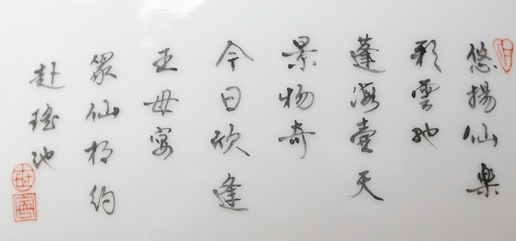 悠揚仙樂
彩雲馳
蓬海壺天
景物奇
今日欣逢
王母宴
眾仙相約
赴瑤池